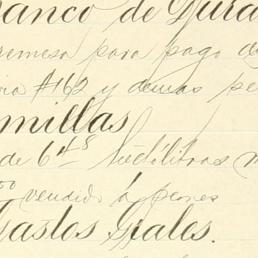 Banco de Dura
remesa para pago d
#162 y demas pe
millas
de 6 48 hectólitros m
vendido á peones
Gastos Grales.